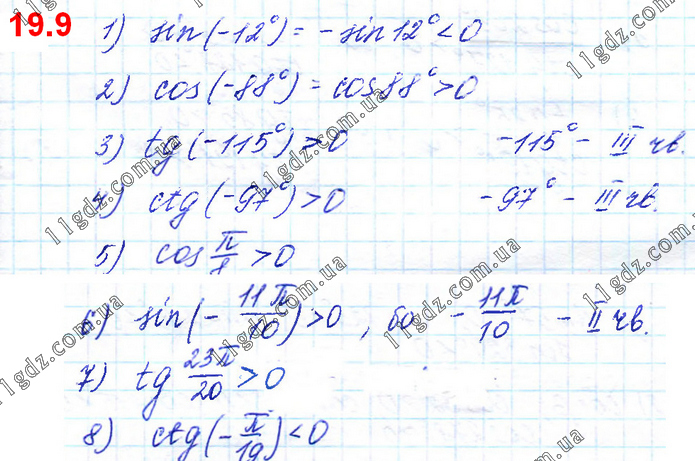 19.9
1) sin(-12°) = -sin12° < 0
2) cos(-88°) = cos88° > 0
3) tg(-115°) > 0 -115° - III чв.
4) ctg(-97°) > 0 -97° - III чв.
5) cos π/8 > 0
6) sin(- 11π/10) > 0, бо - 11π/10 - II чв.
7) tg 23π/20 > 0
8) ctg(- π/19) < 0
11gdz.com.ua
11gdz.com.ua
11gdz.com.ua
11gdz.com.ua
11gdz.com.ua
11gdz.com.ua